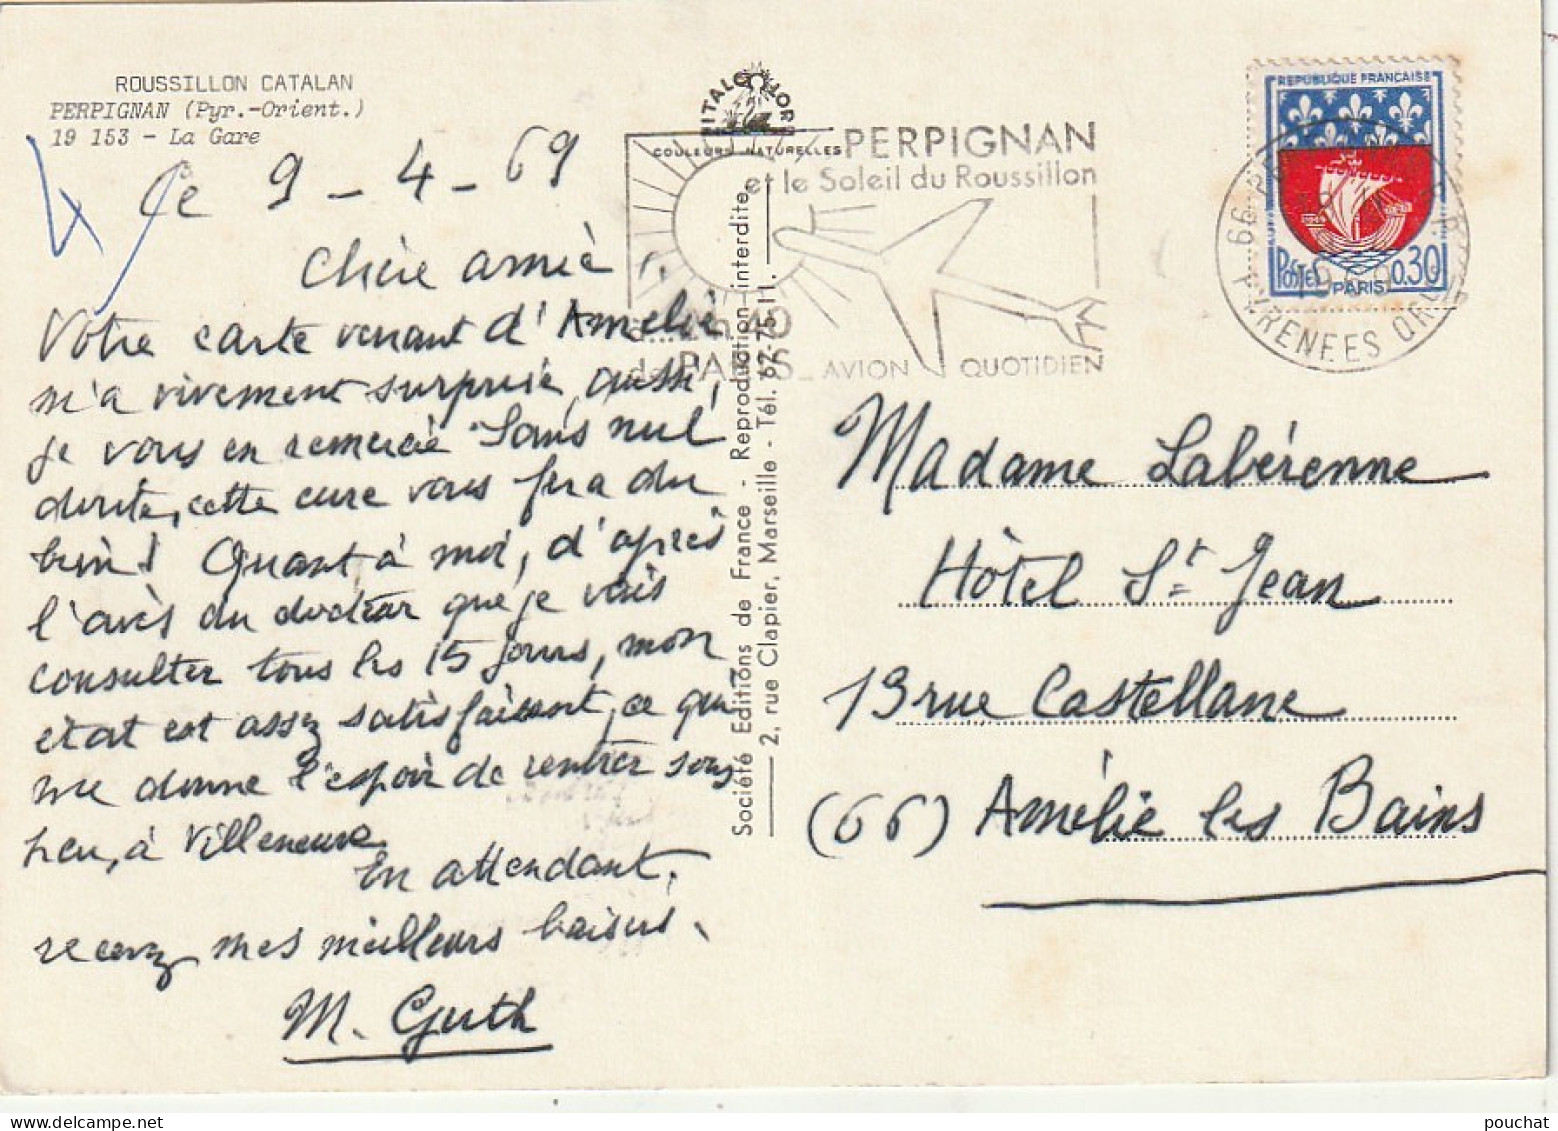 ROUSSILLON CATALAN
PERPIGNAN (Pyr.-Orient.)
19 153 - La Gare
Ce 9-4-69
Chère amie,
Votre carte venant d'Amélie
m'a vivement surprise, aussi,
je vous en remercie. Sans nul
doute, cette cure vous fera du
bien! Quant à moi, d'après
l'avis du docteur que je vais
consulter tous les 15 jours, mon
état est assez satisfaisant, ce qui
me donne l'espoir de rentrer sous
peu, à Villeneuve
En attendant,
recevez mes meilleurs baisers.
M. Guth
ITALCOLOR
COULEURS NATURELLES
Société Editions de France - Reproduction interdite
2, rue Clapier, Marseille - Tél. 62-75-11.
PERPIGNAN
et le Soleil du Roussillon
à 2h40
de PARIS_ AVION QUOTIDIEN
REPUBLIQUE FRANÇAISE
POSTES 0,30
PARIS
66
PYRENEES ORLES
Madame Labérenne
Hôtel St Jean
19 rue Castellane
(66) Amélie les Bains
pouchat